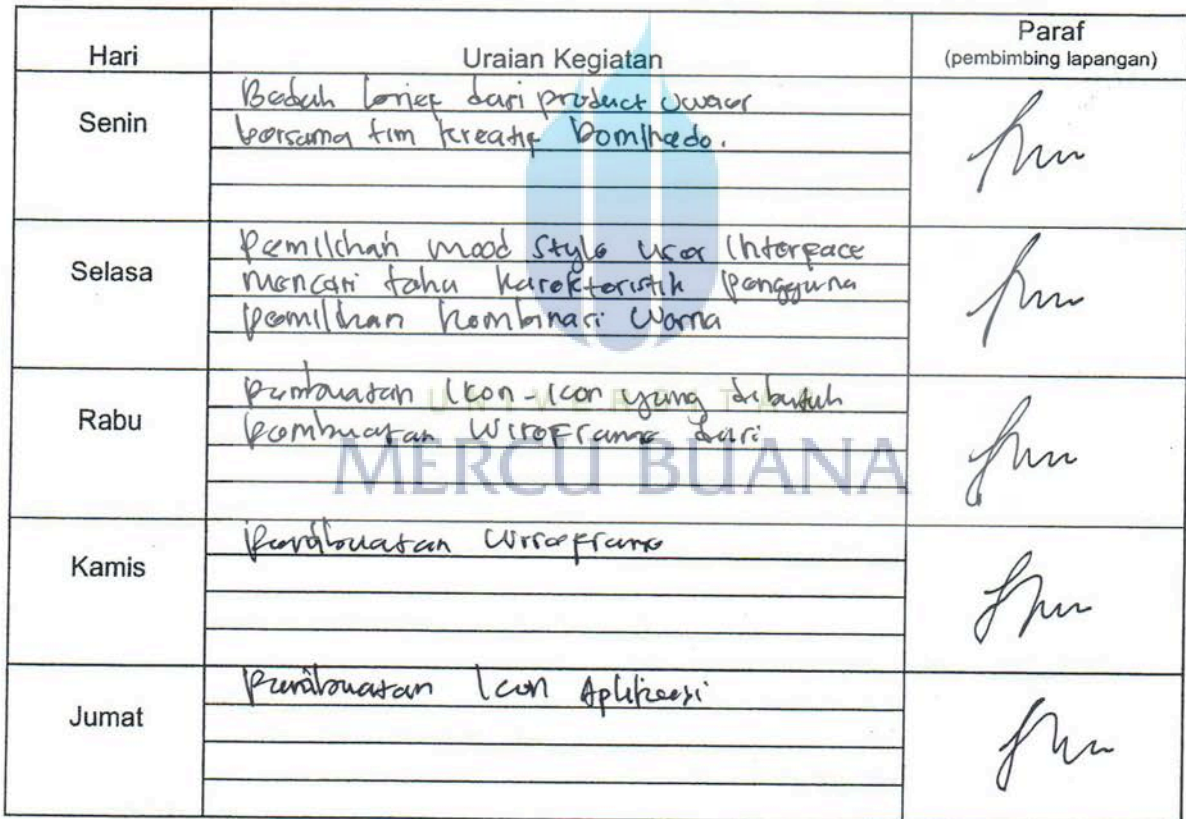 Hari Uraian Kegiatan Paraf
(pembimbing lapangan)
Senin
Bedah brief dari product owner
bersama tim kreatif
Selasa
Pemilihan mood style user interface
mencari tahu karakteristik pengguna
pemilihan kombinasi warna
Rabu
pembuatan icon-icon yang dibutuh
pembuatan wireframe dari
UNIVERSITAS
MERCU BUANA
Kamis
pembuatan wireframe
Jumat
pembuatan icon Aplikasi